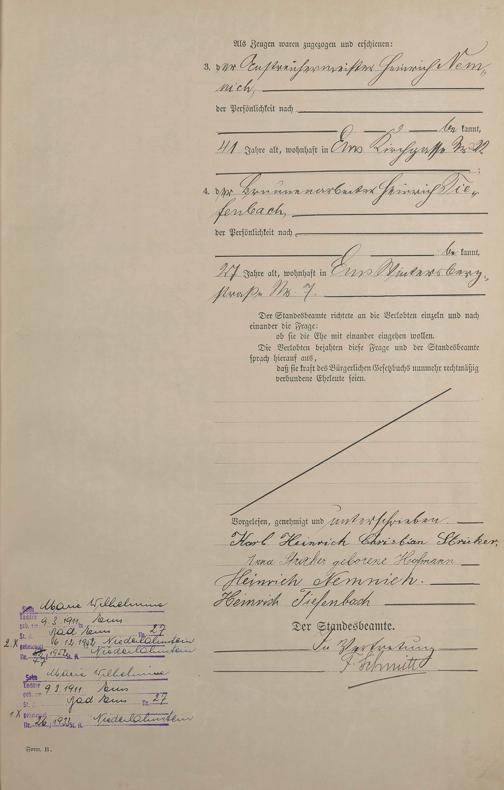 Als Zeugen waren zugezogen und erschienen:
3. der Anstreichermeister Heinrich Nem-
nich,
der Persönlichkeit nach
be kannt,
41 Jahre alt, wohnhaft in Ems Kirchgasse Nr.
4. der Brunnenarbeiter Heinrich Tie-
fenbach,
der Persönlichkeit nach
be kannt,
27 Jahre alt, wohnhaft in Ems Wintersberg-
straße Nr. 7.
Der Standesbeamte richtete an die Verlobten einzeln und nach
einander die Frage:
ob sie die Ehe mit einander eingehen wollen.
Die Verlobten bejahten diese Frage und der Standesbeamte
sprach hierauf aus,
daß sie kraft des Bürgerlichen Gesetzbuchs nunmehr rechtmäßig
verbundene Eheleute seien.
Vorgelesen, genehmigt und unterschrieben.
Karl Heinrich Christian Stricker,
Anna Stricker geborene Hofmann
Heinrich Nemnich.
Heinrich Tiefenbach
Der Standesbeamte.
In Vertretung
F. Schmitt
Marie Wilhelmine
Tochter
9.3.1911 in Ems
Bad Ems Nr. 27
2.X 16.12.1952 Niederlahnstein
1952 Niederlahnstein
Marie Wilhelmine
Tochter
9.3.1911 Ems
Bad Ems Nr. 27
1X
Nr. 26, 1932 St. A. Niederlahnstein
Form. B.